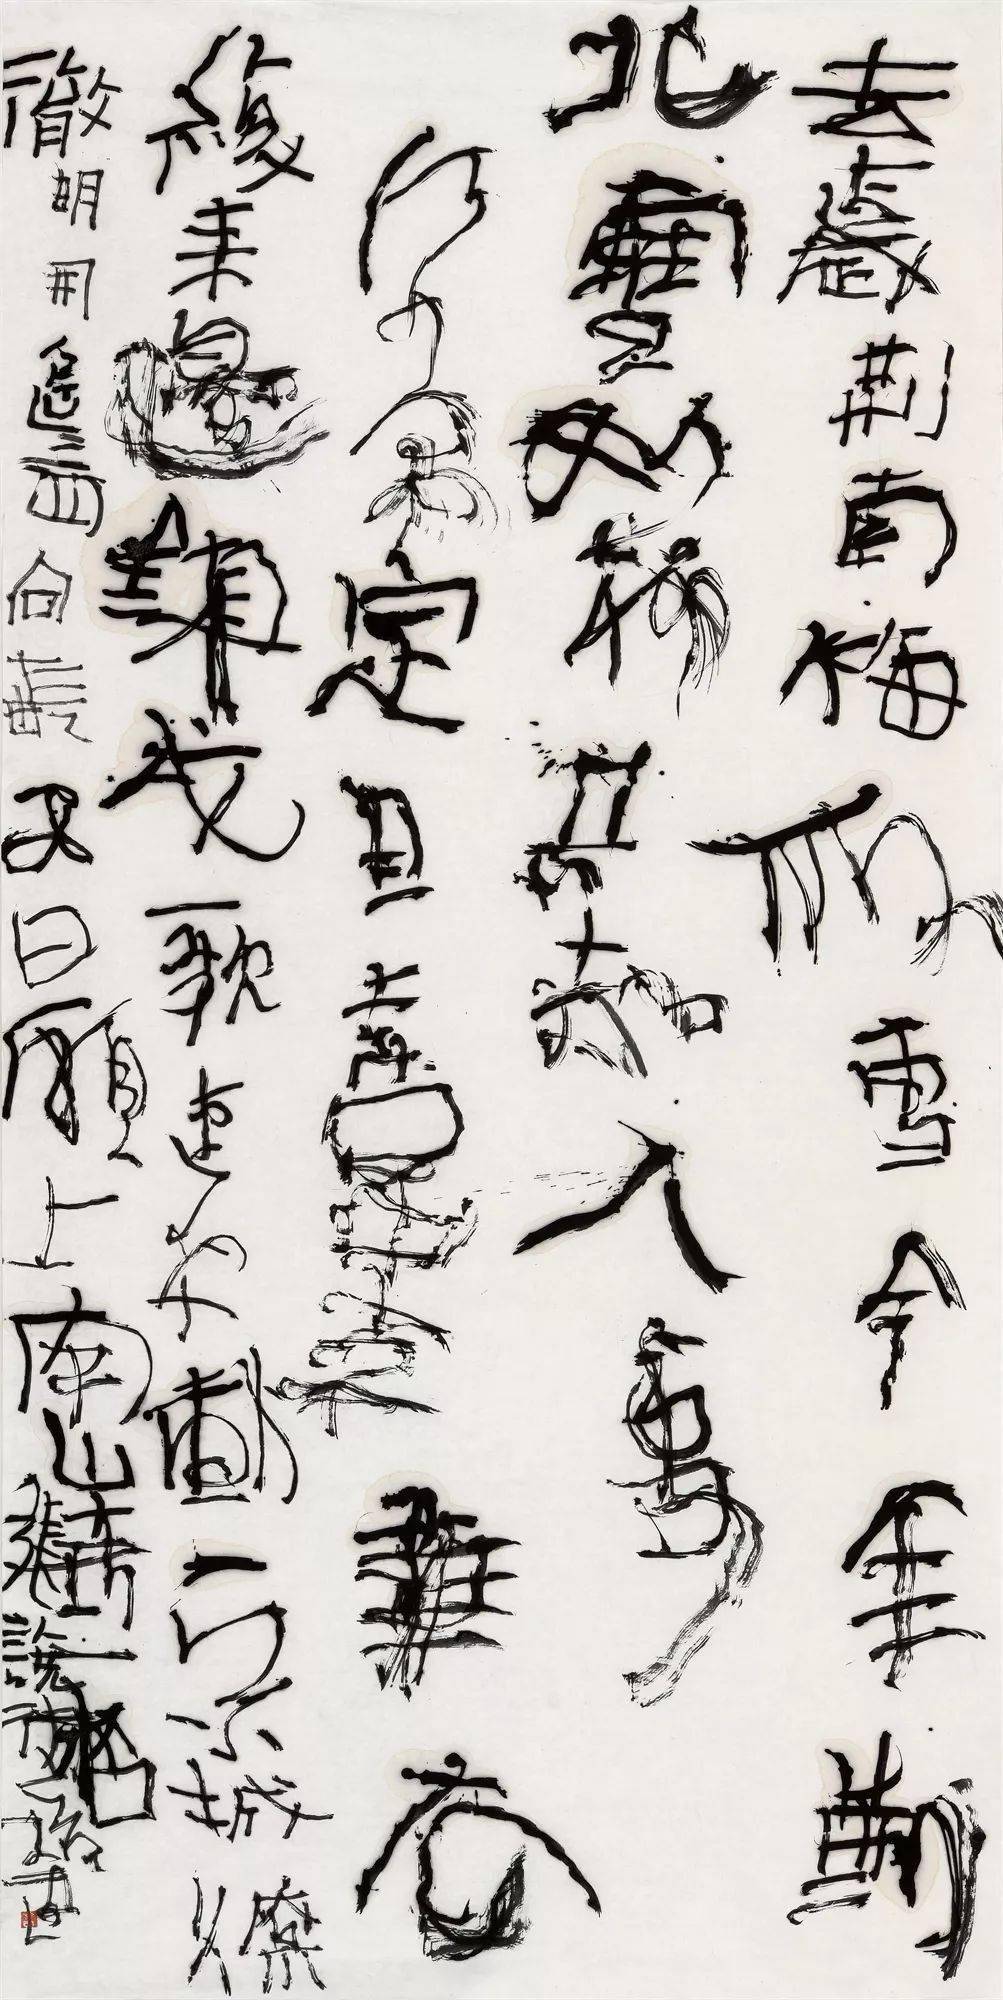 去歲荊南梅似雪今年薊
北雪如梅共知人事
何常定且喜年華去
復來邊鎮戍歌連夜動京城燎
徹明開遙西向長安日願上南山壽一杯
張說